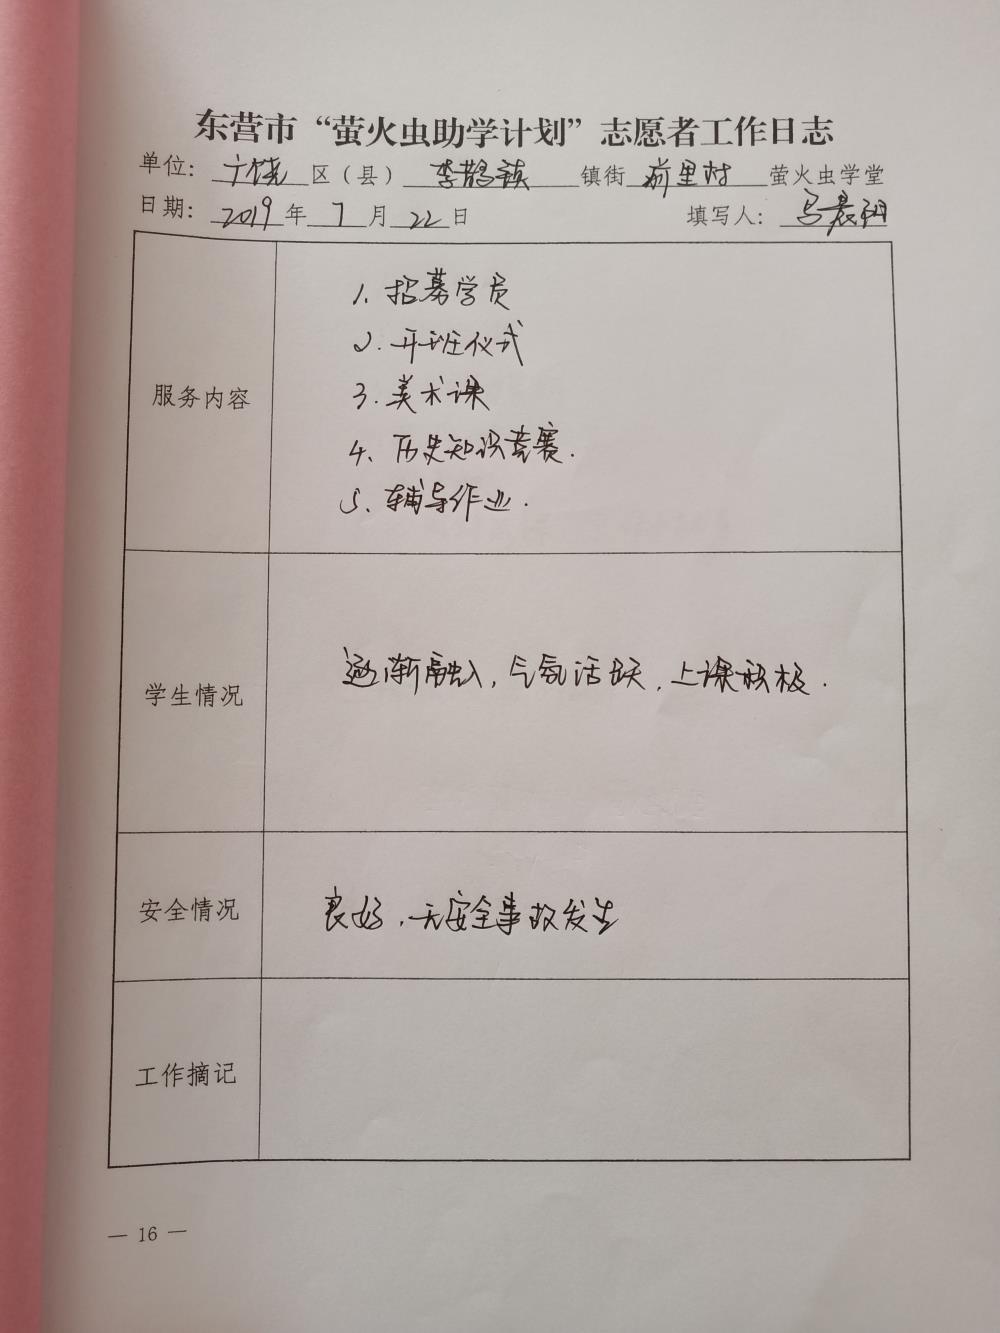 东营市“萤火虫助学计划”志愿者工作日志
单位：广饶区（县）李鹊镇镇街前里村萤火虫学堂
日期：2019年7月22日 填写人：马晨阳
服务内容
1、招募学员
2.开班仪式
3.美术课
4、历史知识竞赛.
5、辅导作业.
学生情况
逐渐融入,气氛活跃,上课积极.
安全情况
良好,无安全事故发生
工作摘记
— 16 —